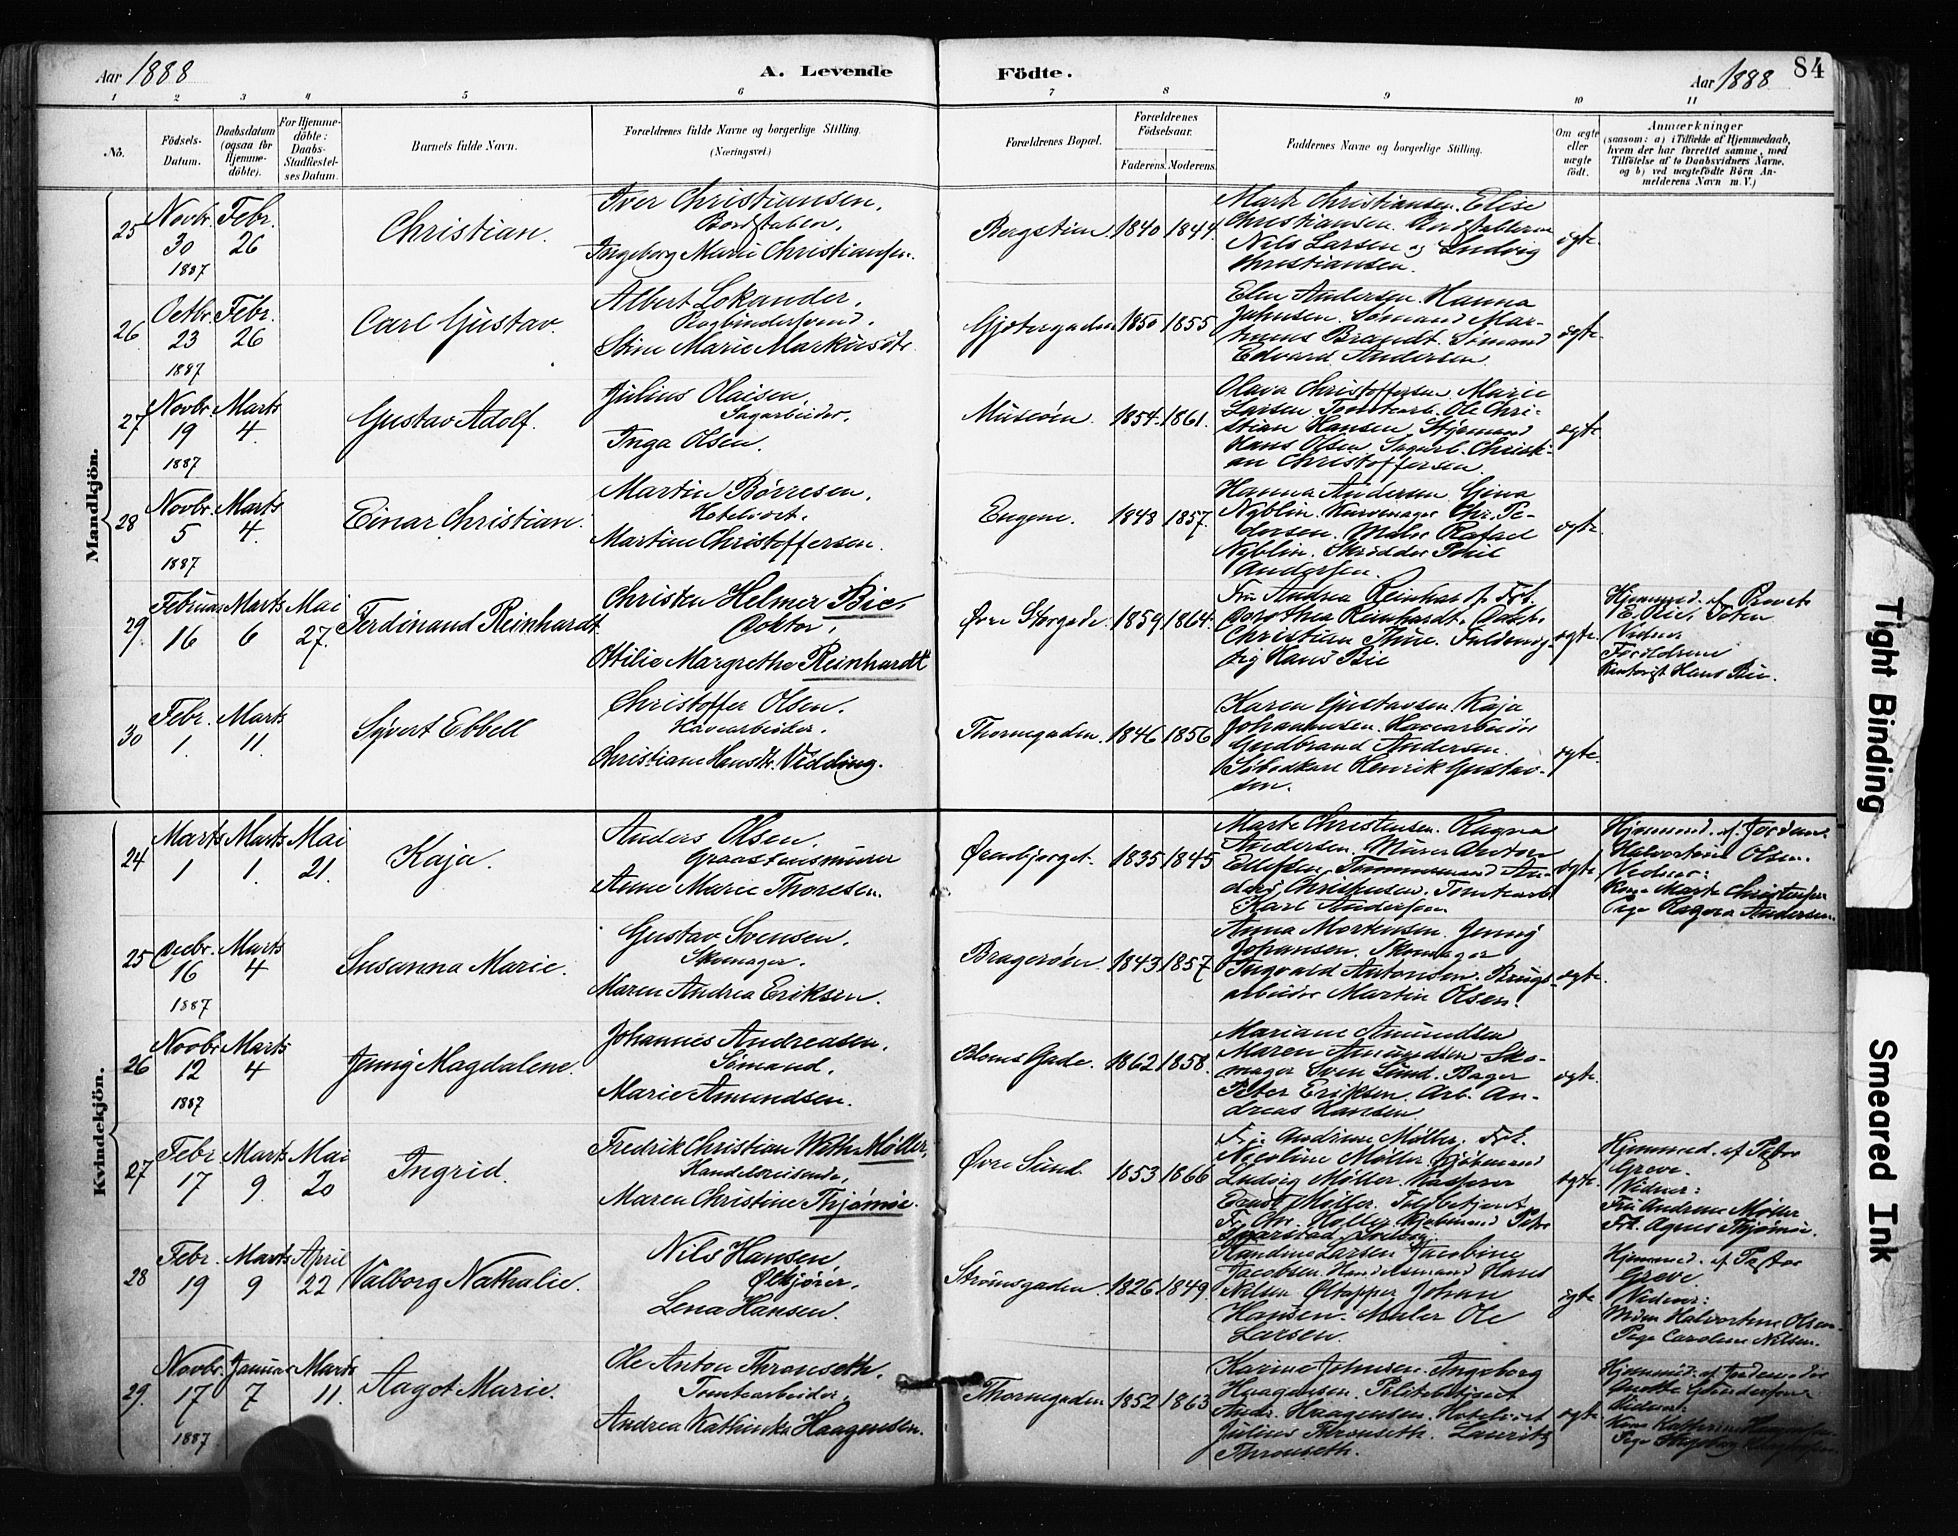 Aar 1888
A. Levende Födte.
Aar 1888
84
1 2 3 4 5 6 7 8 9 10 11
No.
Födsels-Datum.
Daabsdatum (ogsaa for Hjemme-döbte).
For Hjemme-döbte: Daabs-Stadfæstel-ses Datum.
Barnets fulde Navn.
Forældrenes fulde Navne og borgerlige Stilling.
(Næringsvei.)
Forældrenes Bopæl.
Forældrenes Födselsaar.
Faderens. Moderens.
Faddernes Navne og borgerlige Stilling.
Om ægte eller uægte födt.
Anmærkninger
(saasom: a) i Tilfælde af Hjemmedaab,
hvem der har forrettet samme, med
Tilföielse af to Daabsvidners Navne.
og b) ved uægtefödte Börn An-
melderens Navn m. V.)
Mandkjön.
25
Novbr. 30 1887
Febr. 26
Christian.
Iver Christiansen.
Bordstabler,
Ingeborg Marie Christiansen.
Bergstien
1840 1844.
Marte Christiansen. Elise
Christiansen.
Nils Larsen og Ludvig
Christiansen.
ægte.
26
Octbr. 23 1887
Febr. 26
Carl Gustav.
Albert Lokander,
Stine Marie
Gjetergaden
1850 1855
Elen Andersen. Hanna
Johnsen. Sømand Mar-
Brandt. Sømand
Edvard Andersen.
ægte.
27
Novbr. 19 1887
Marts 4.
Gustav Adolf.
Julius Olaisen,
Sagarbeider,
Inga Olsen.
Museøen.
1854. 1861.
Olava Christoffersen Marie
Larsen Tomtearb. Ole Chri-
stian Hansen
Hans Olsen Sagarb. Christi-
an Christoffersen.
ægte
28
Novbr. 5 1887
Marts 4.
Einar Christian.
Martin Børresen,
Hotelvært.
Martine Christoffersen.
Engene.
1848 1857.
Hanna Andersen Gina
Nyblin. Chr. Pe-
dersen. Maler Rafael
Nyblin. Skrædder
Andersen.
ægte
29
Februar 16
Marts 6
Mai 27.
Ferdinand Reinhardt
Christen Helmer Bie,
Doktor,
Ottilie Margrethe Reinhardt
Øvre Storgade
1859 1864.
Fru Andrea Reinhardt. Frk.
Dorothea Reinhardt.
Christian Thue. Fuldmæg-
tig Hans Bie
ægte.
Hjemmed. af Provst
E. Bie, Toten
Vidner
Forældrene
Hans Bie.
30
Febr. 1.
Marts 11.
Syvert Ebbell
Christoffer Olsen.
Havearbeider,
Christiane Hansdtr. Vedding.
Thornegaden.
1846 1856
Karen Gustavsen. Kaja
Johannesen. Havearbeider
Gudbrand Andersen.
Henrik Gustav-
sen.
ægte.
Kvindekjön.
24
Marts 1
Marts 1.
Mai 21.
Kaja.
Anders Olsen,
Graastensmurer
Anne Marie Thoresen.
Ørenbjerget.
1835 1845
Marte Christensen. Ragna
Andersen. Murer Anton
Ellefsen, Tømmermand An-
ders Christensen. Tomtearb.
Karl Andersen
ægte.
Hjemmed. af Jordem.
Halvorsine Olsen.
Vidner:
Kone Marte Christensen
Pige Ragna Andersen.
25
Decbr. 16 1887
Marts 4
Susanna Marie.
Gustav Svensen,
Skomager.
Maren Andrea Eriksen.
Bragerøen.
1843 1857
Anna Mortensen. Jenny
Johansen. Skomager
Ingvald Antonsen. Brugs-
arbeider Martin Olsen.
ægte.
26
Novbr 12 1887
Marts 4
Jenny Magdalene.
Johannes Andreasen,
Sømand,
Marie Amundsen.
Bloms Gade.
1862 1858.
Mariane Amundsen
Maren Amundsen Sko-
mager Sven Lund. Bager
Peter Eriksen. Arb. An-
dreas Hansen
ægte.
27
Febr 17
Marts 9
Mai 20
Ingrid.
Fredrik Christian Weth Møller,
Handelsreisende,
Maren Christine Thjømøe.
Øvre Sund.
1853 1866
Fru Andrine Møller. Frk.
Nicoline Møller Kjøbmand
Ludvig Møller. Kasserer
Ernst Møller. Toldbetjent
Fr. Chr. Holler Kjøbmand Peter
ægte.
Hjemmed. af Pastor
Greve.
Vidner:
Fru Andrine Møller
Frk. Agnes Thjømøe.
28
Febr. 19
Marts 9
April 22
Valborg Nathalie.
Nils Hansen,
Ølkjører,
Lena Hansen.
Strømsgaden.
1826 1849
Randine Larsen Jacobine
Jacobsen. Handelsmand Hans
Nilsen Øltapper Johan
Hansen. Maler Ole
Larsen.
ægte
Hjemmed. af Pastor
Greve
Vidner:
Halvorsine Olsen.
Pige Caroline Nilsen.
29.
Novbr. 17 1887
Januar 7
Marts 11.
Aagot Marie.
Ole Anton Thronseth,
Tomtearbeider,
Andrea Kathinka Haagensen.
Thornegaden
1852 1863
Karine Johnsen. Ingeborg
Haagensen. Politibetjent
Andr. Haagensen. Hotelvært
Julius Thronseth. Laurits
Thronseth.
ægte
Vidner:
Tight Binding
Smeared Ink